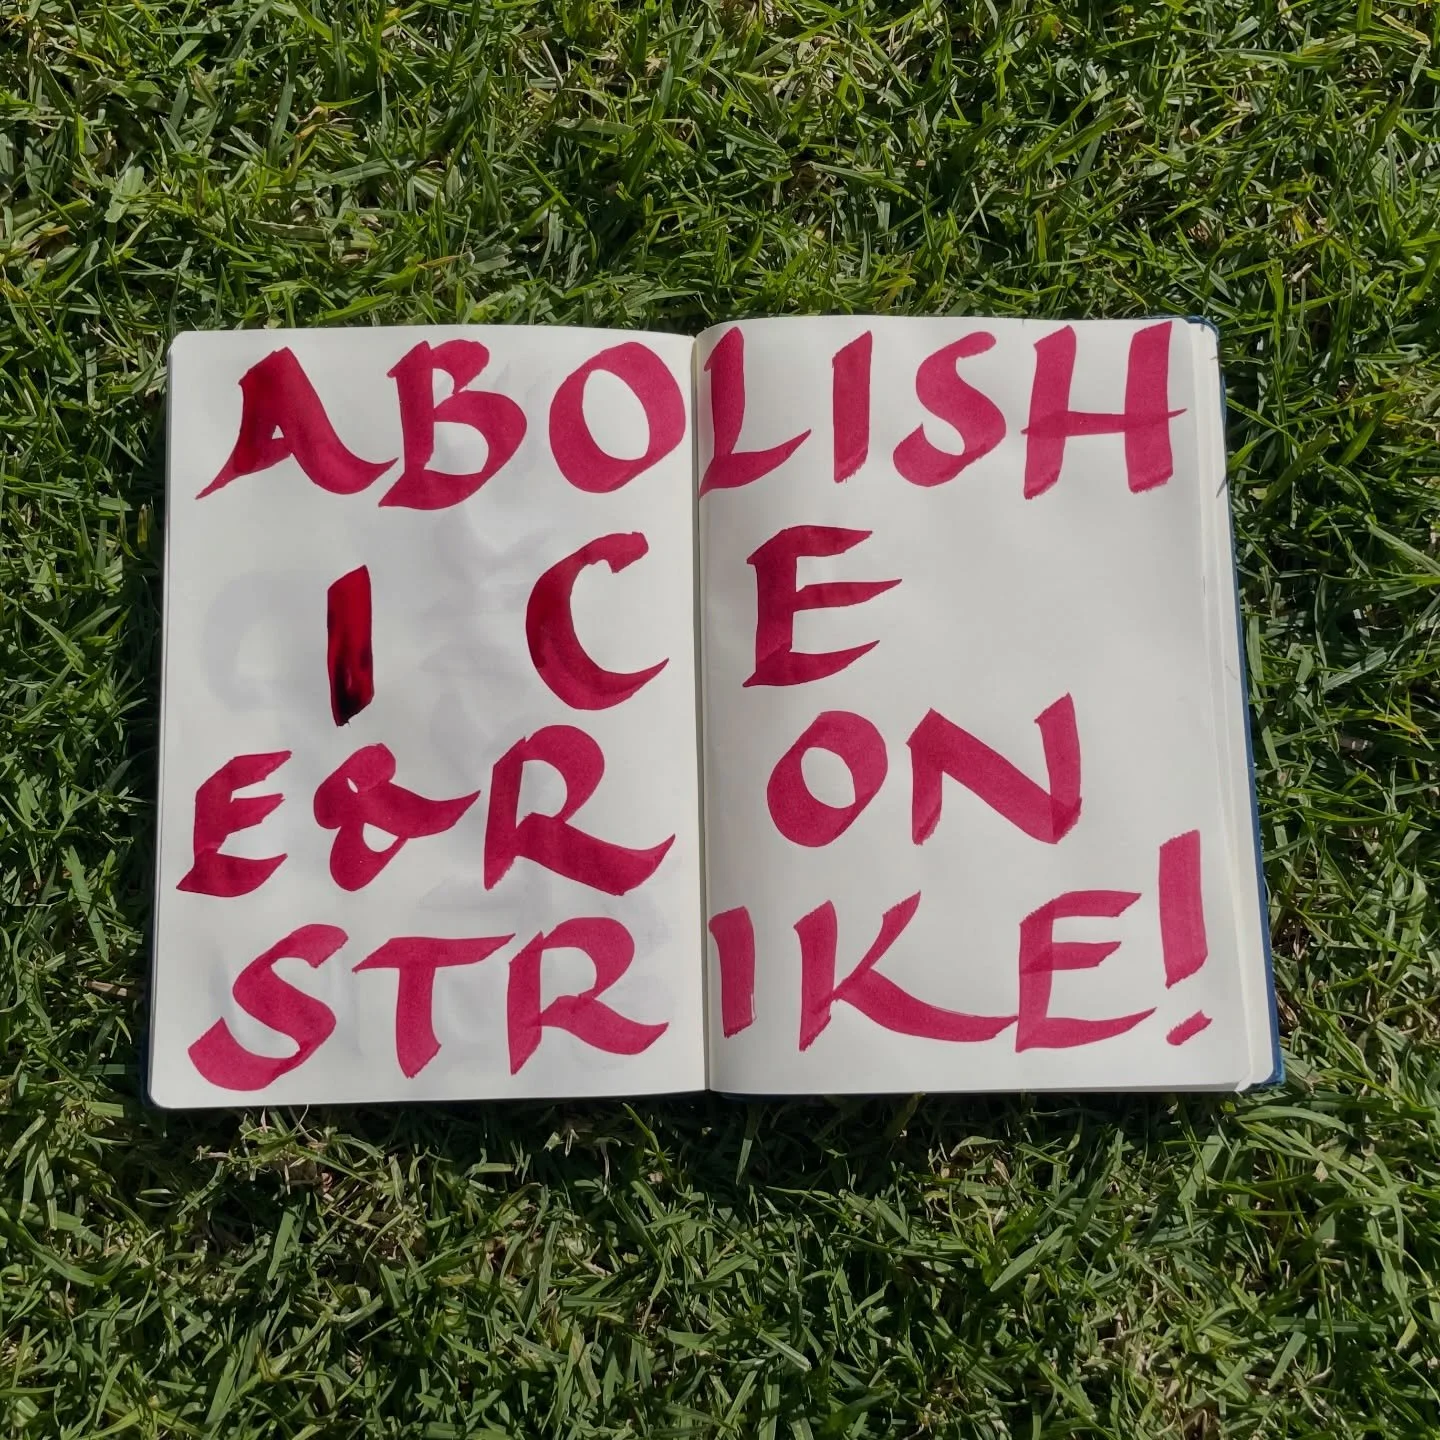 ABOLISH
ICE
E&R ON
STRIKE!